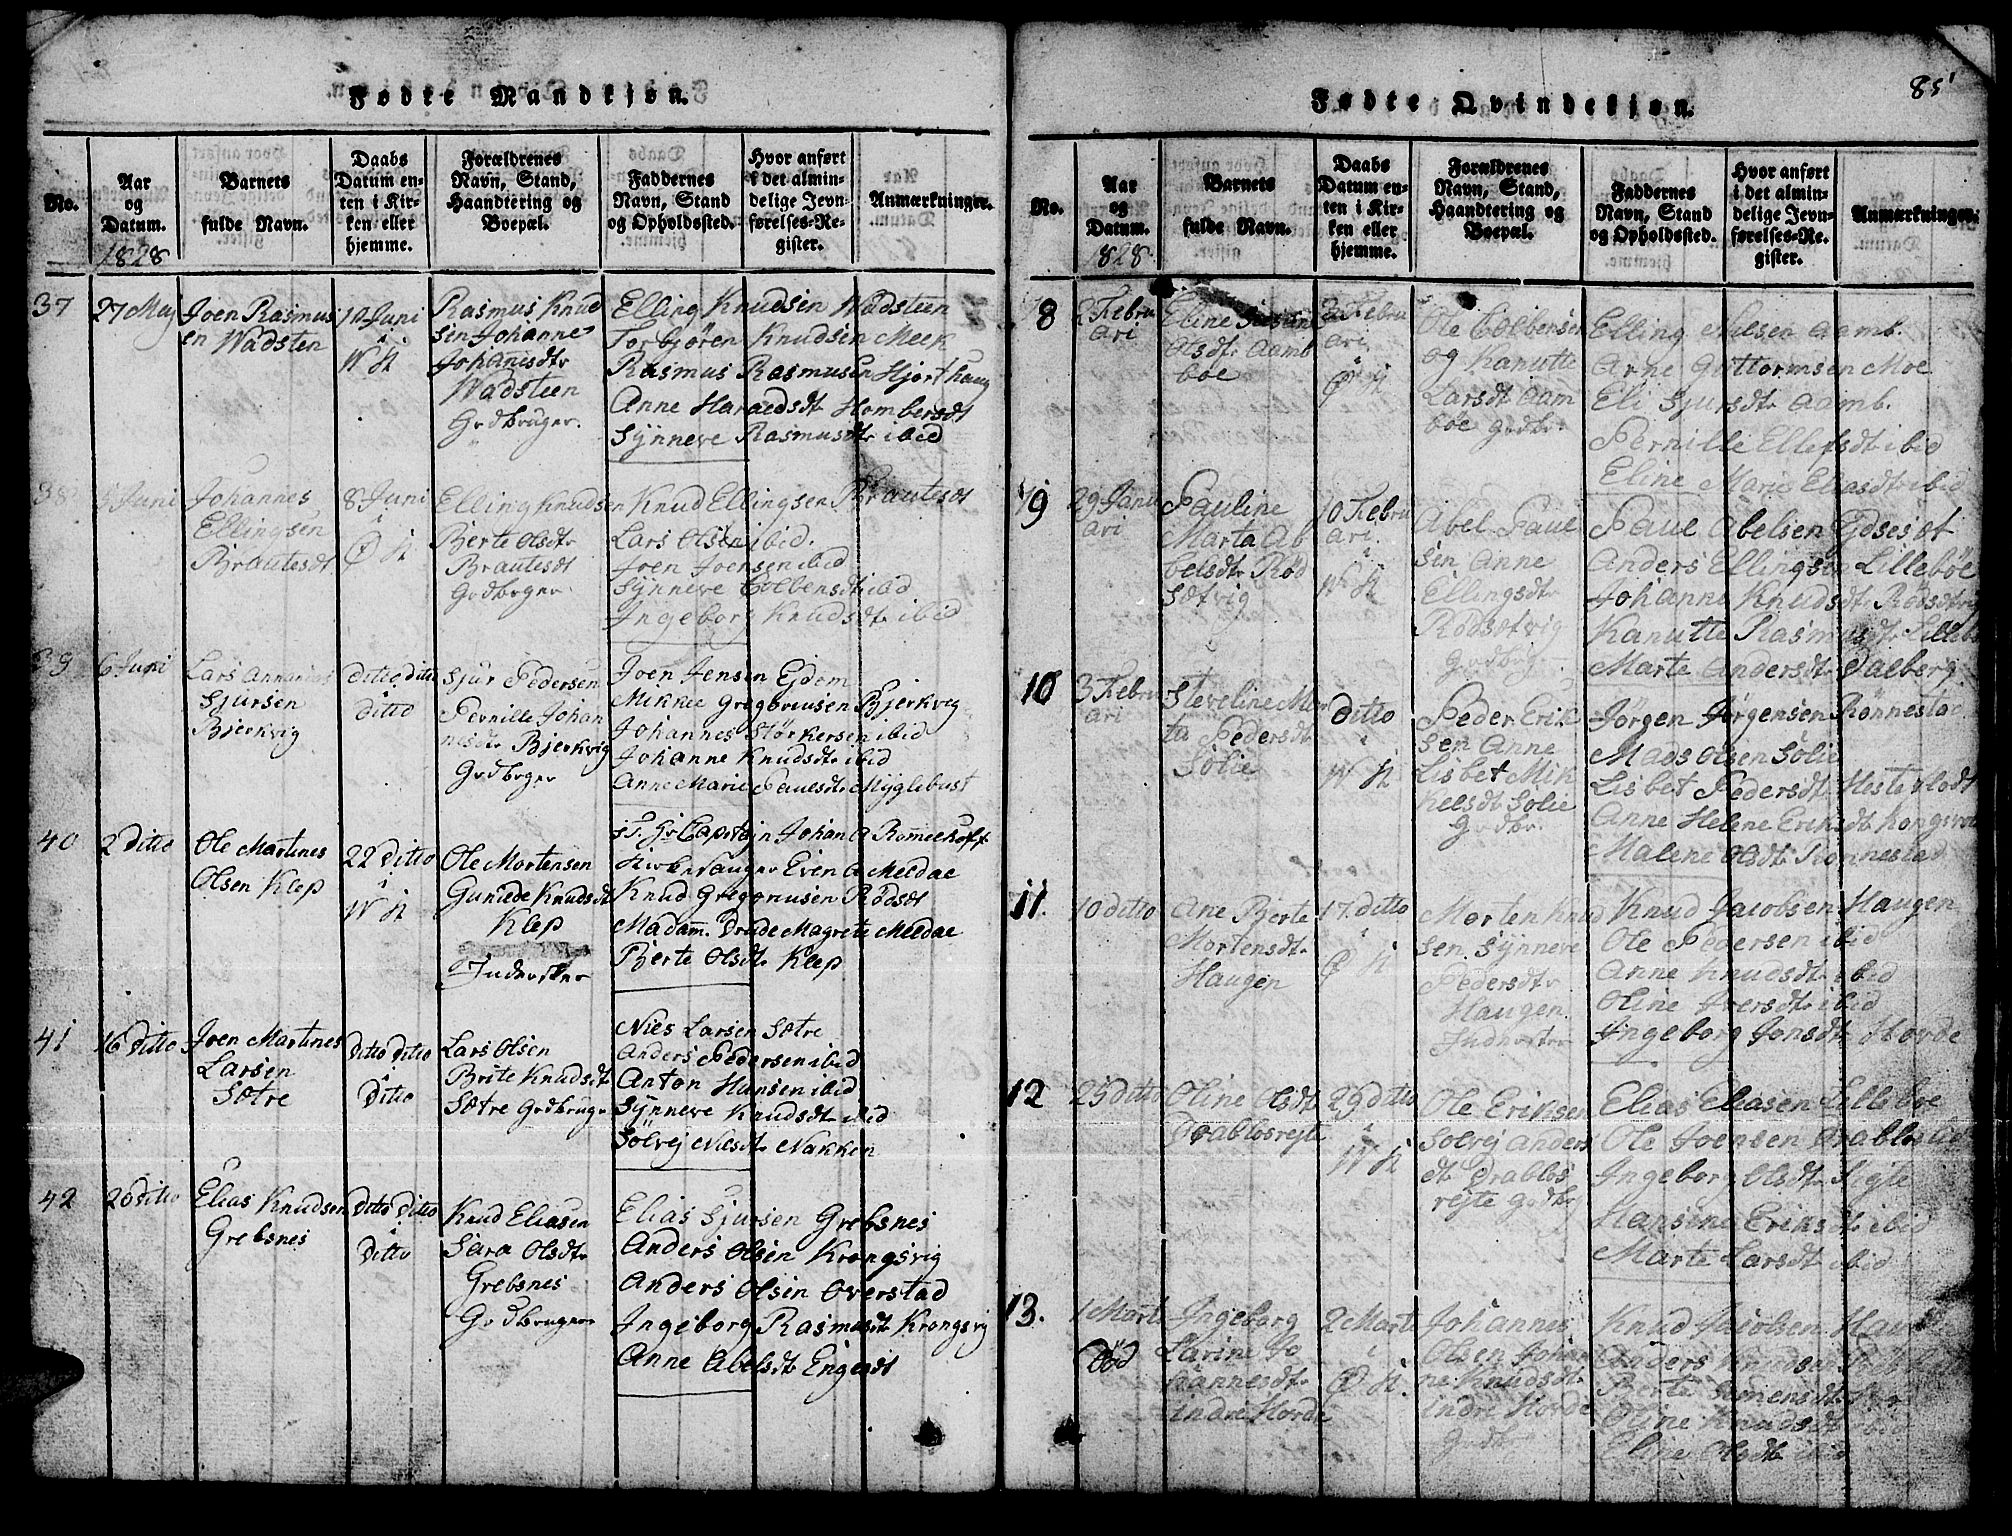 Fødte Mandkjøn.
No.
Aar
og
Datum.
1828
Barnets
fulde Navn.
Daabs
Datum en-
ten i Kir-
ken eller
hjemme.
Forældrenes
Navn, Stand,
Haandtering og
Boepæl.
Faddernes
Navn, Stand
og Opholdssted.
Hvor anført
i det almin-
delige Jevn-
førelses-Re-
gister.
Anmærkninger.
37
27 May
Joen Rasmus
en Wadsten
1 Juni
i
W K
Rasmus Knud
sen Johanne
Johanisdtr
Wadsteen
Grdbruger.
Elling Knudsen Wadsteen
Torbjøren Knudsen Meek
Rasmus Rasmusen Hjorthaug
Anne Haraedsdt Hombersdt
Synneve Rasmusdtr ibid
38
Juni
Johannes
Ellingsen
Brautesdt
8 Juni
i
Ø K
Elling Knudsen
Berte Olsdtr
Brautesdt
Grdboger
Knud Ellingsen Brautesdt
Lars Olsen ibid.
Joen Joensen ibid
Synneve Colbensdt ibid
Ingeborg Knudsdtr ibid
39
6 Juni
Lars
Sjursen
Bjerkvig
Ditto Ditto
Ditto
Sjur Pedersen
Pernille Johan
nesdtr Bjerkvig
Grdboger
Joen Jensen Ejdem
Mikkel Gregoriusen Bjerkvig
Johannes Størkersen ibid
Johanne Knudsdtr ibid
Anne Marie Pauesdtr Myglebust
40
2 Ditto
Ole Martines
Olsen Klep
22 Ditto
i
W K
Ole Mortensen
Gunilde Knudsdt
Klep
Inderster
Capitejn Johan A Romeehoff
Kirkesanger Even A Meldae
Knud Gregoriusen Rødsdt
Madam. Drude Magrete Meldae
Berte Olsdtr Klep
41
16 Ditto
Joen Martines
Larsen
Sætre
Ditto Ditto
i
Ditto
Lars Olsen
Brite Knudsdtr
Sætre Grdbruger
Nies Larsen Sætre
Anders Pedersen ibid
Anton Hansen ibid
Synneve Knudsdt ibid
Sølvej Nilsdt Nakken
42
20 Ditto
Elias Knudsen
Grebsnes
Ditto Ditto
i
Ditto
Knud Eliasen
Sara Olsdtr
Grebsnes
Grdbruger
Elias Sjursen Grebsnes
Anders Olsen Krongsvig
Anders Olsen Overstad
Ingeborg Rasmusdtr Krongsvig
Anne Abelsdt Engesdt
85
Fødte Qvindekjøn.
No.
Aar
og
Datum.
1828
Barnets
fulde Navn.
Daabs
Datum en-
ten i Kir-
ken eller
hjemme.
Forældrenes
Navn, Stand,
Haandtering og
Boepæl.
Faddernes
Navn, Stand
og Opholdssted.
Hvor anført
i det almin-
delige Jevn-
førelses-Re-
gister.
Anmærkninger.
8
2 Febru
ari
Eline
Olsdtr Aamb
bøe
3 Febru
ari
i
Ø K
Ole Colbensen
og Kanutte
Larsdt Aam
bøe Grdbr
Elling Nilsen Aamb.
Arne Guttormsen Moe
Eli Sjursdtr Aamb.
Pernille Ellefsdt ibid
Eline Marie Eliasdtr ibid
9
29 Janu
ari
Pauline
Marta Ab
belsdtr Rød
Sætvig
10 Febru
ari.
i
W K
Abel Paul
sen Anne
Ellingsdtr
Rødsætvig
Grdbrg
Paul Abelsen Ejdsesdt
Anders Ellingsen Lillebøe
Johanne Knudsdtr Rødsdtvig
Kanutte Rasmusdtr Lilleb
Marte Andersdtr Daeberg
10
3 Febru
ari
Steveline Mar
ta Pedersdt
Sølie
Ditto
i
W K
Peder Erik
sen Anne
Lisbet Mik
kelsdt Sølie
Grdbr.
Jørgen Jørgensen Rønnestad
Mads Olsen Sølie
Lisbet Pedersdt Hesteflodt
Anne Helene Eriksdt Kongsvo
Malene Olsdtr Rønnestad
11.
10 Ditto
Ane Berte
Mortensdtr
Haugen
17. Ditto
i
Ø K
Morten Knud
sen Synneve
Pedersdtr
Haugen.
Inderster
Knud Jacobsen Haugen
Ole Pedersen ibid
Anne Knudsdtr ibid
Oline Iversdtr ibid
Ingeborg Jonsdt Horde
12
25 Ditto
Oline Olsdt
Drabløsrejte
29 Ditto
i
W K
Ole Eriksen
Solvej Anders
dt Drabløs
rejte Grdbr
Elias Eliasen Lillebøe
Ole Joensen Drabløs
Ingeborg Olsdt Sigte
Hansine Eriksdtr ibid
Marte Larsdt ibid
13.
1 Marti
Død
Ingeborg
Larine Jo
hannesdtr
Indre Horde
2 Marti
i
Ø K.
Johannes
Olsen Johan
ne Knudsdtr
Indre Horde
Grdbr
Knud Jacobsen Hau
Anders Knudsen
Berte Simensdt
Oline Knudsdt ibid
Eline Olsdt ibid